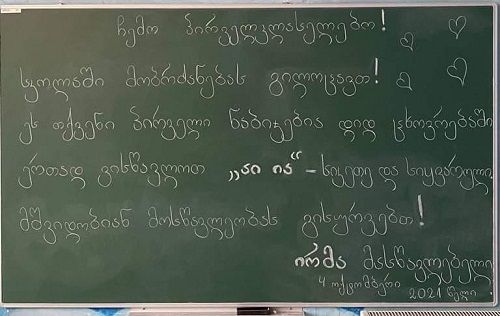 ჩემო პირველკლასელებო!
სკოლაში მობრძანებას გილოცავთ!
ეს თქვენი პირველი ნაბიჯებია დიდ ცხოვრებაში
ერთად ვისწავლოთ „აი ია“ – სიკეთე და სიყვარული
მშვიდობიან მოსწავლეობას გისურვებთ!
ირმა მასწავლებელი
4 ოქტომბერი 2021 წელი